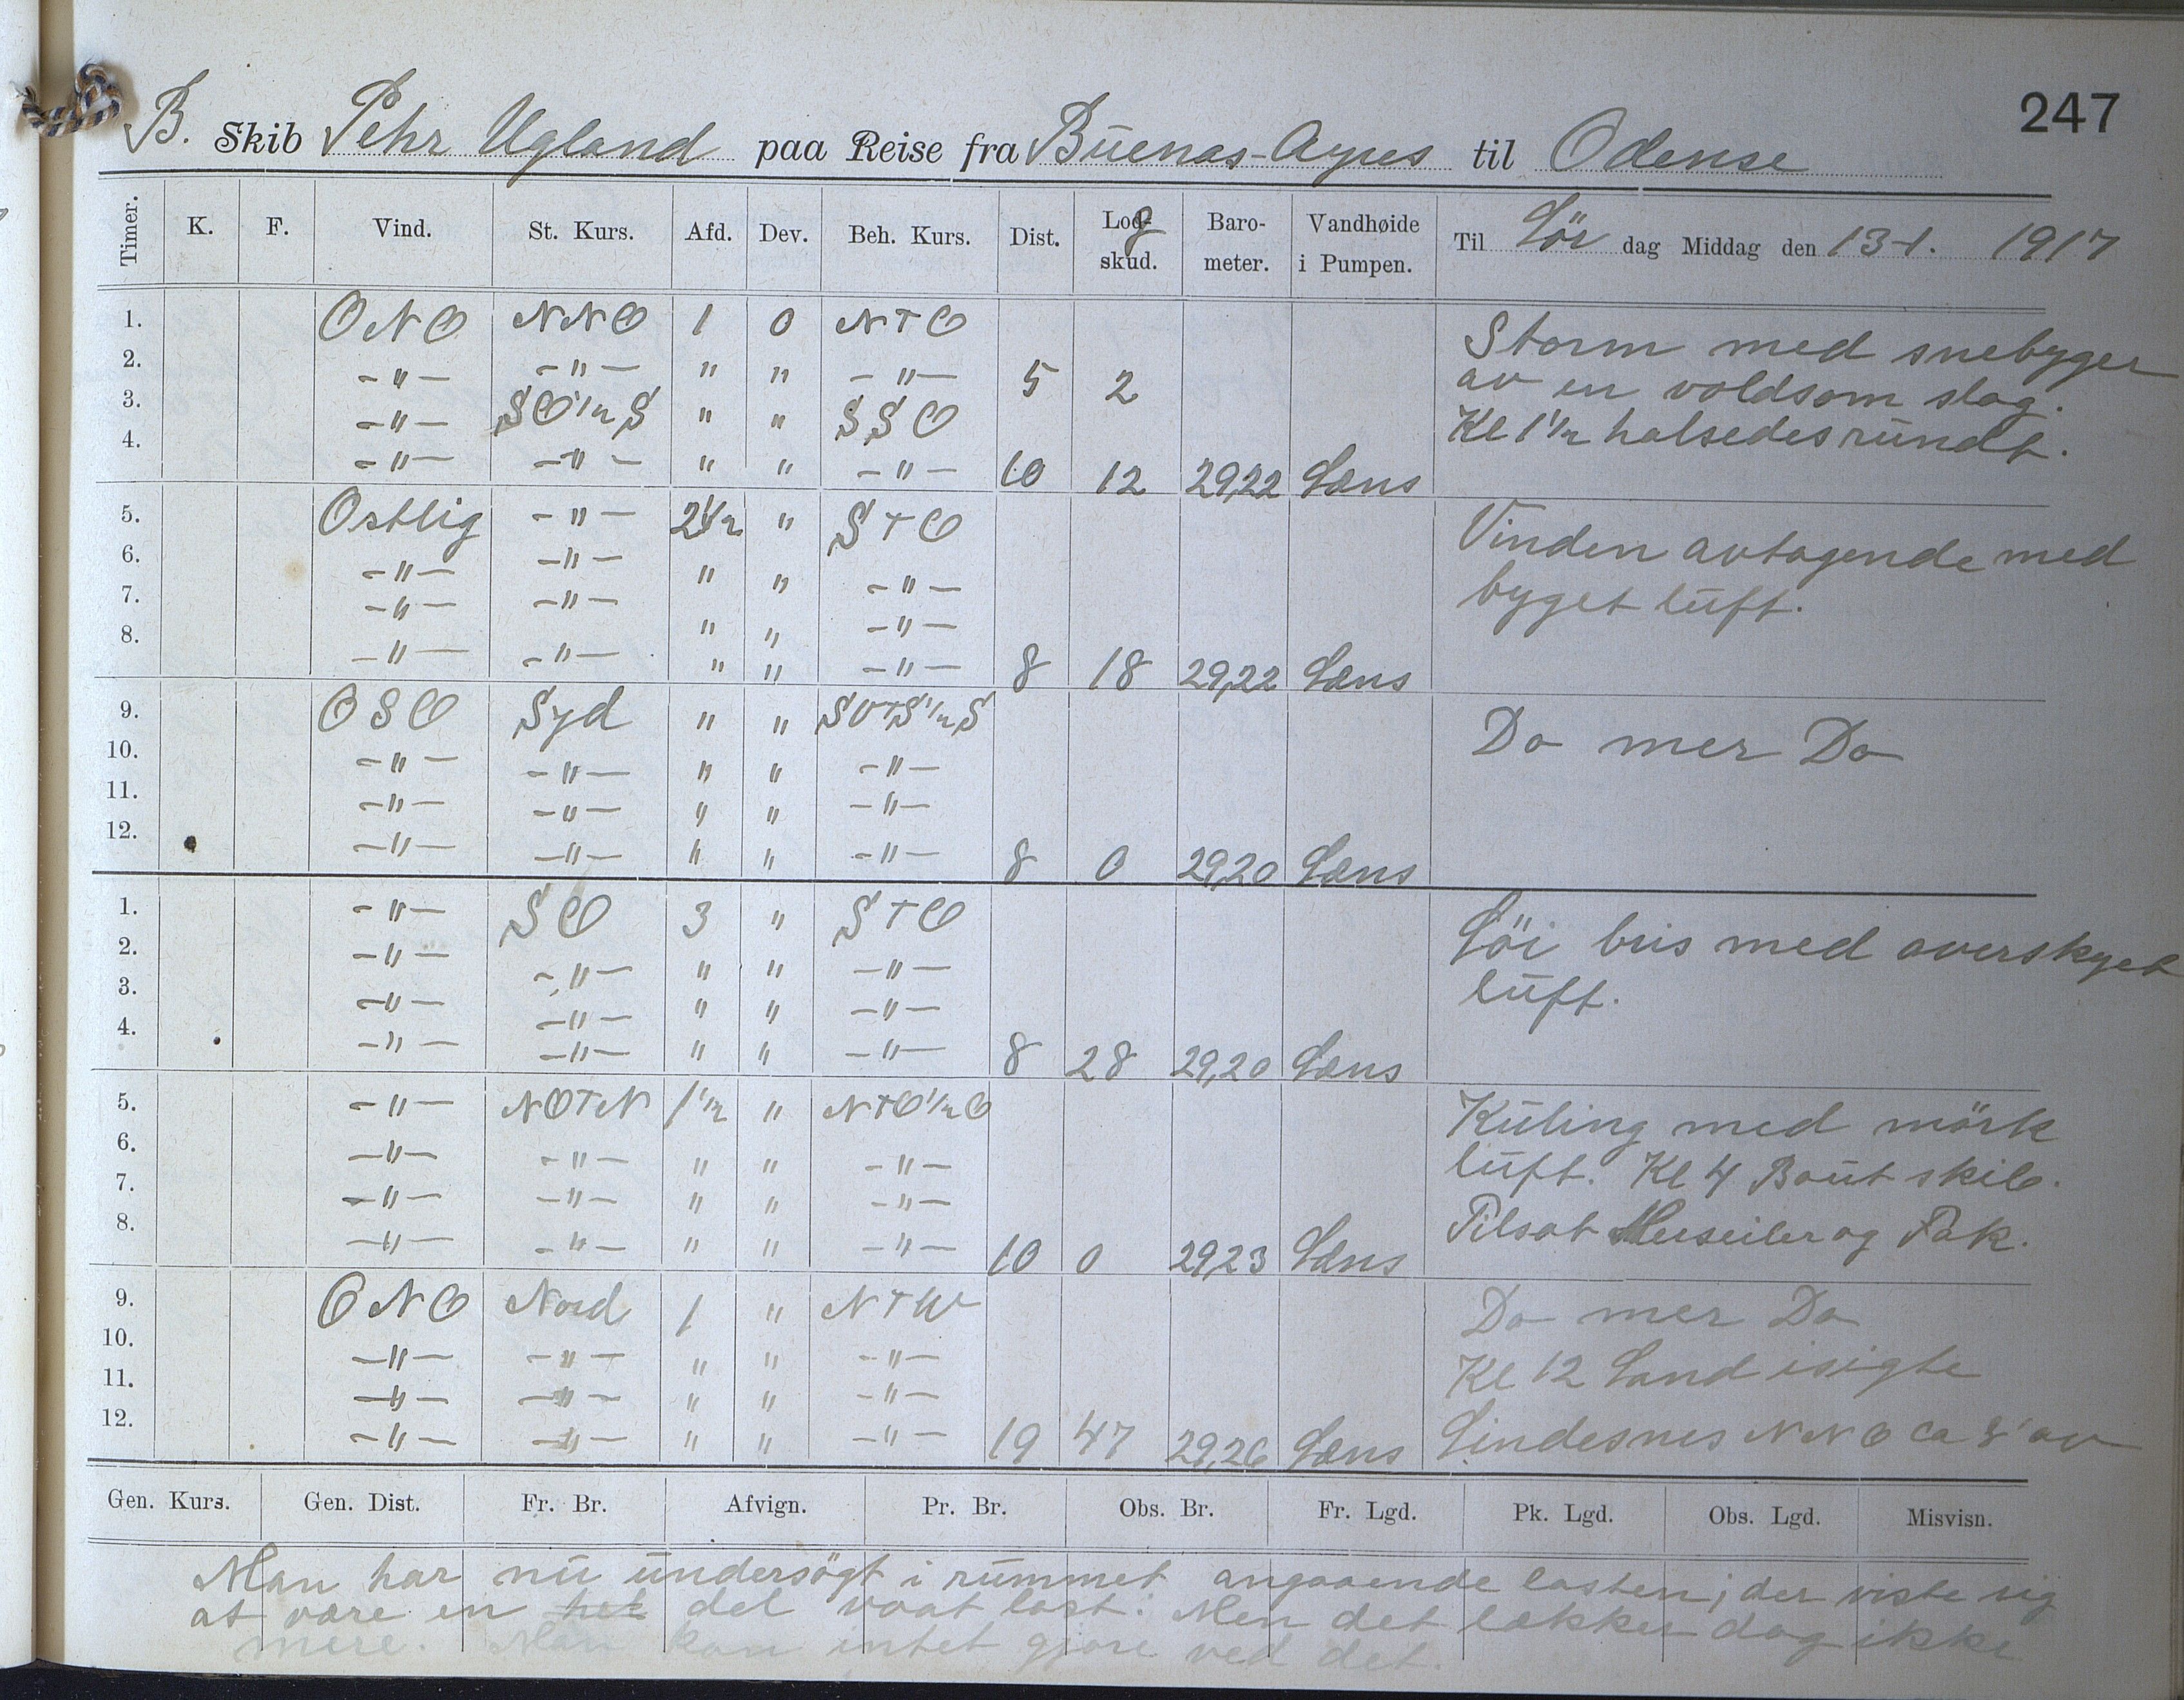 247
B. Skib Pehr Ugland paa Reise fra Buenas-Ayres til Odense
Timer. K. F. Vind. St. Kurs. Afd. Dev. Beh. Kurs. Dist. Log-skud. Baro-meter. Vandhøide i Pumpen. Til Lör dag Middag den 13-1. 1917
1. ONO NNO 1 0 NTO Storm med snebyger
2. -"- -"- " " -"- 5 2 av en voldsom slag.
3. -"- SO1/2S " " SSO Kl 1 1/2 halsedes rundt.
4. -"- -"- " " -"- 10 12 29,22 Læns
5. Ostlig -"- 2 1/2 " STO Vinden avtagende med
6. -"- -"- " " -"- byget luft.
7. -"- -"- " " -"-
8. -"- -"- " " -"- 8 18 29,22 Læns
9. OSO Syd " " SOTS1/2S Do mer Do
10. -"- -"- " " -"-
11. -"- -"- " " -"-
12. -"- -"- " " -"- 8 0 29,20 Læns
1. -"- SO 3 " STO Löi bris med overskyet
2. -"- -"- " " -"- luft.
3. -"- -"- " " -"-
4. -"- -"- " " -"- 8 28 29,20 Læns
5. -"- NOTN 1 1/2 " NTO1/2O Kuling med mörk
6. -"- -"- " " -"- luft. Kl 4 Bout skib.
7. -"- -"- " " -"- Tilsat Merseiler og Fok.
8. -"- -"- " " -"- 10 0 29,23 Læns
9. ONO Nord 1 " NTW Do mer Do
10. -"- -"- " " -"- Kl 12 Land isigte
11. -"- -"- " " -"-
12. -"- -"- " " -"- 19 47 29,26 Læns Lindesnes NNO ca 8' av
Gen. Kurs. Gen. Dist. Fr. Br. Afvign. Pr. Br. Obs. Br. Fr. Lgd. Pk. Lgd. Obs. Lgd. Misvisn.
Man har nu undersögt i rummet angaaende lasten; der viste sig
at være en hel del vaat last. Men det lækker dog ikke
mere. Man kan intet gjøre ved det.